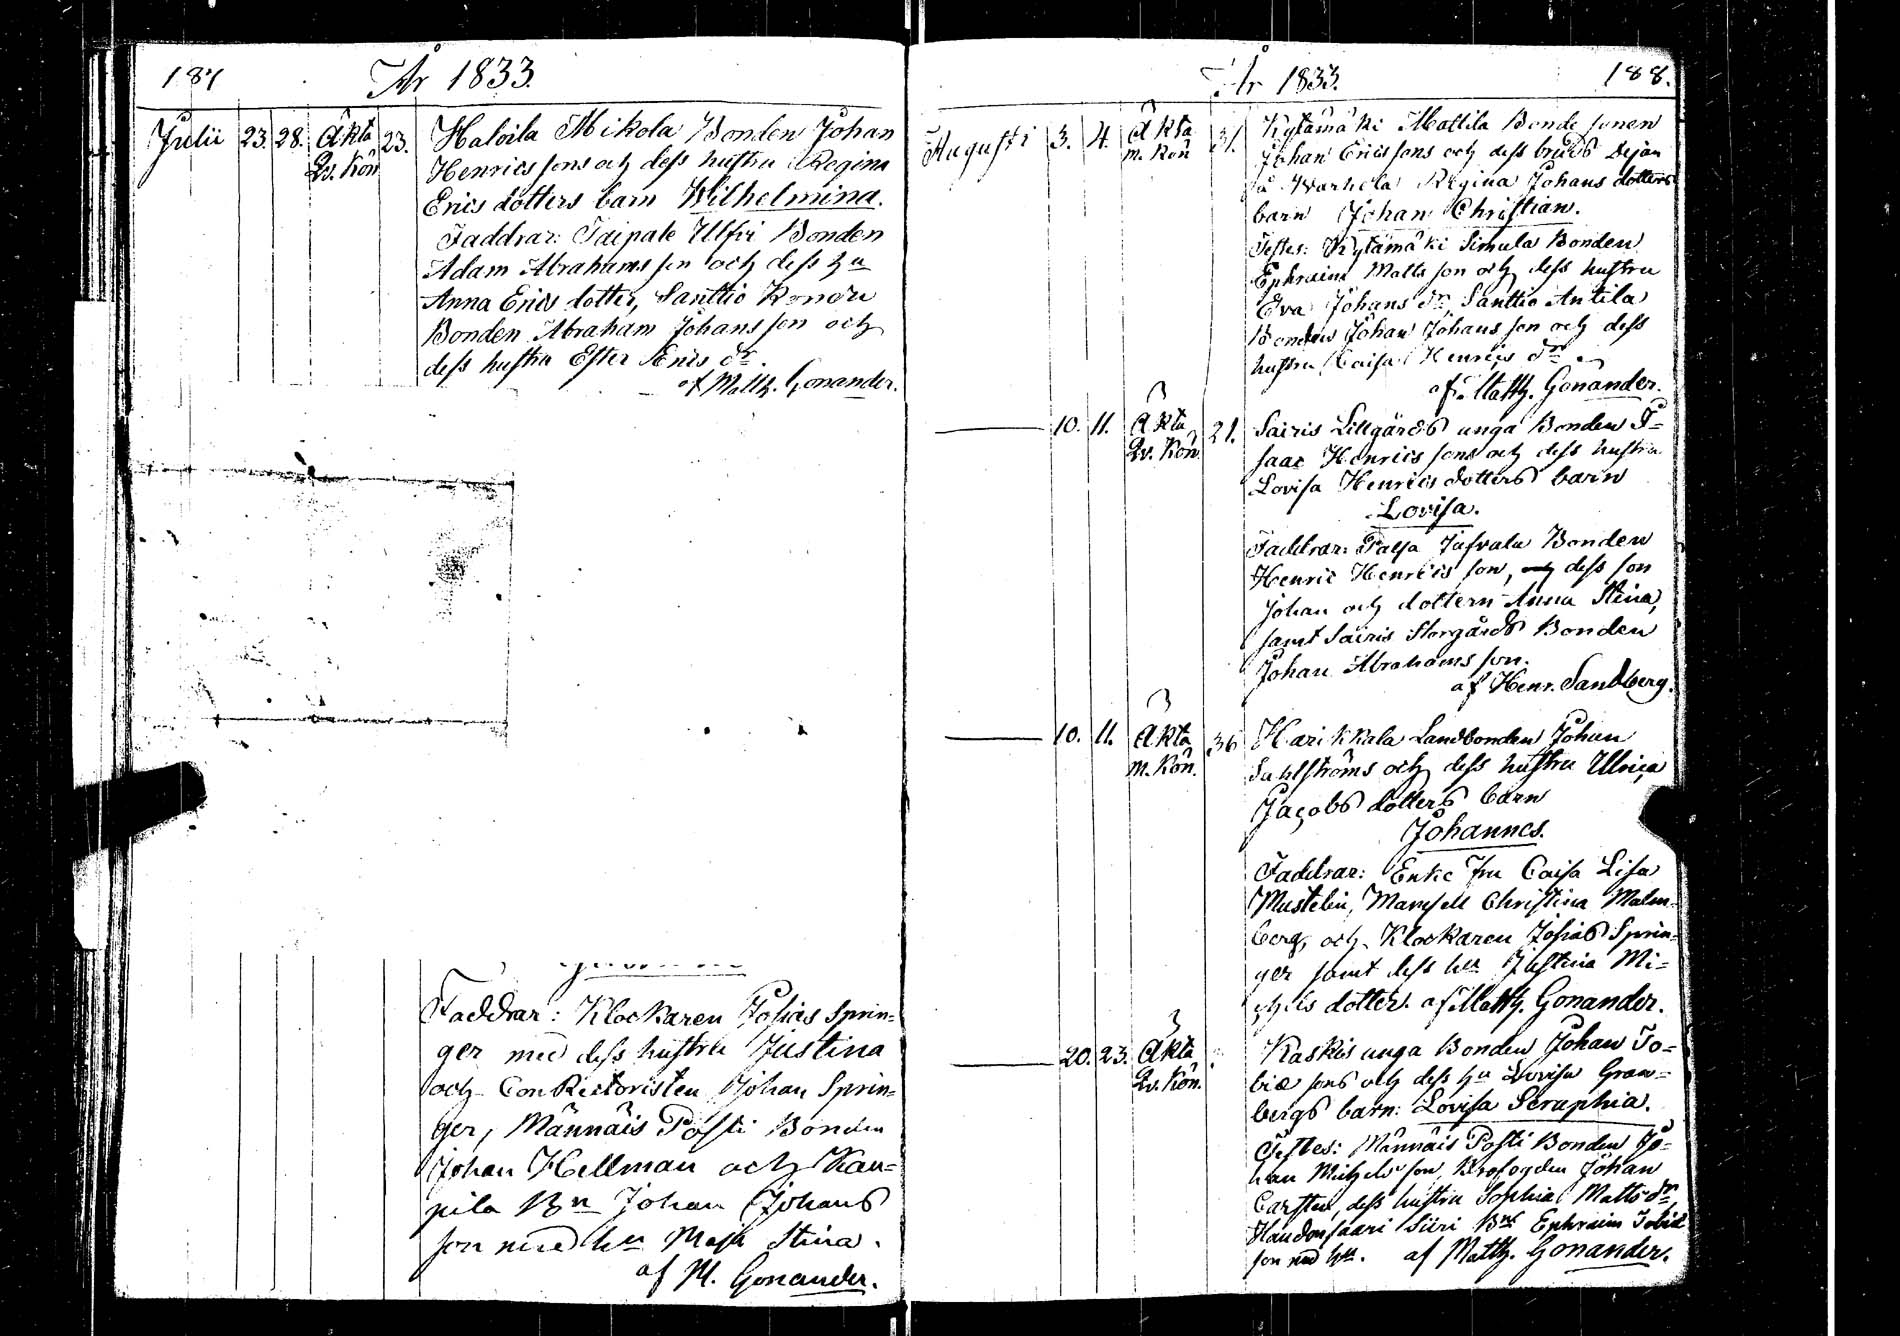 187 År 1833.
Julii 23. 28. Äkta 23. Haloila Mikola Bonden Johan
Qv. Kön Henrics sons och dess hustru Regina
Erics dotters barn Wilhelmina.
Faddrar: Taipale Ulfvi Bonden
Adam Abrahams son och dess hu
Anna Erics dotter, Santtio
Bonden Abraham Johans son och
dess hustru Ester Erics dr.
af Matth. Gonander.
Faddrar: Klockaren Josias Sprin=
ger med dess hustru Justina
och Con Rectoristen Johan Sprin=
ger, Männäis Påsti Bonden
Johan Hellman och Kau=
pila Bn Johan Johans
son med hu Maja Stina.
af M. Gonander.
År 1833. 188.
Augusti 3. 4. Äkta 31. Kytämäki Mattila Bonde sonen
m. Kön Johan Erics sons och dess bruds Dejan
å Warhela Regina Johans dotters
barn Johan Christian.
Testes: Kytämäki Simula Bonden
Ephraim Matts son och dess hustru
Eva Johans dr, Santtio Antila
Bonden Johan Johans son och dess
hustru Caisa Henrics dr.
af Matth. Gonander.
10. 11. Äkta 21. Sairis Lillgårds unga Bonden I=
Qv. Kön. saac Henrics sons och dess hustru
Lovisa Henrics dotters barn
Lovisa.
Faddrar: Palsa Bonden
Henric Henrics son, dess son
Johan och dottern Anna Stina,
samt Sairis Storgårds Bonden
Johan Abrahams son.
af Henr. Sandberg.
10. 11. Äkta 36 Harikkala Landbonden Johan
m. Kön. Sahlströms och dess hustru Ulrica
Jacobs dotters barn
Johannes.
Faddrar: Enke fru Caisa Lisa
Mustelin, Mamsell Christina Malm=
berg, och Klockaren Josias Sprin=
ger samt dess hu Justina Mi=
chels dotter. af Matth. Gonander.
20. 23. Äkta Kaskis unga Bonden Johan To=
Qv. Kön. biæ sons och dess hu Lovisa Gran=
bergs barn: Lovisa Seraphia.
Testes: Männäis Påsti Bonden Jo=
han Michels son, Krofogden Johan
Carsten, dess hustru Sophia Matts dr,
Haudonsaari Siiri Bn Ephraim Tobiæ
son med hu. af Matth. Gonander.